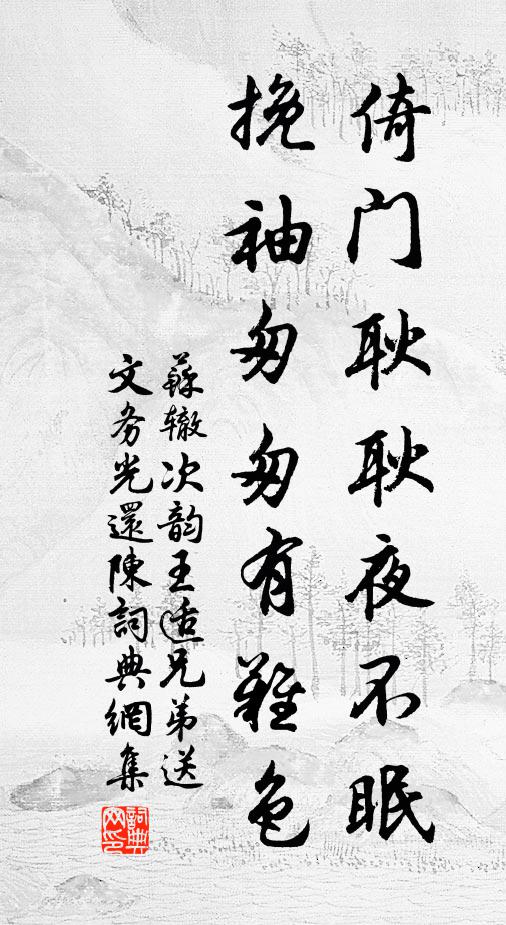 倚门耿耿夜不眠
挽袖匆匆有难色
蘇辙次韵王适兄弟送
文务光還陳詞典網集
詞典网印